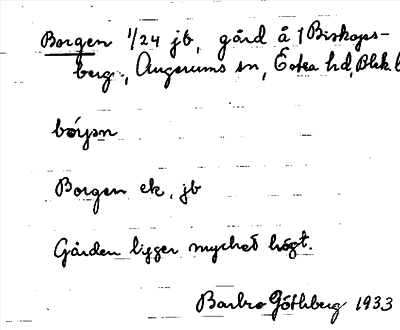 Borgen 1/24 jb, gård å 1 Biskops-
berg, Augerums sn, Östra hd, Blek. l
Borgen ek, jb
Gården ligger mycket högt.
Barbro Göthberg 1933